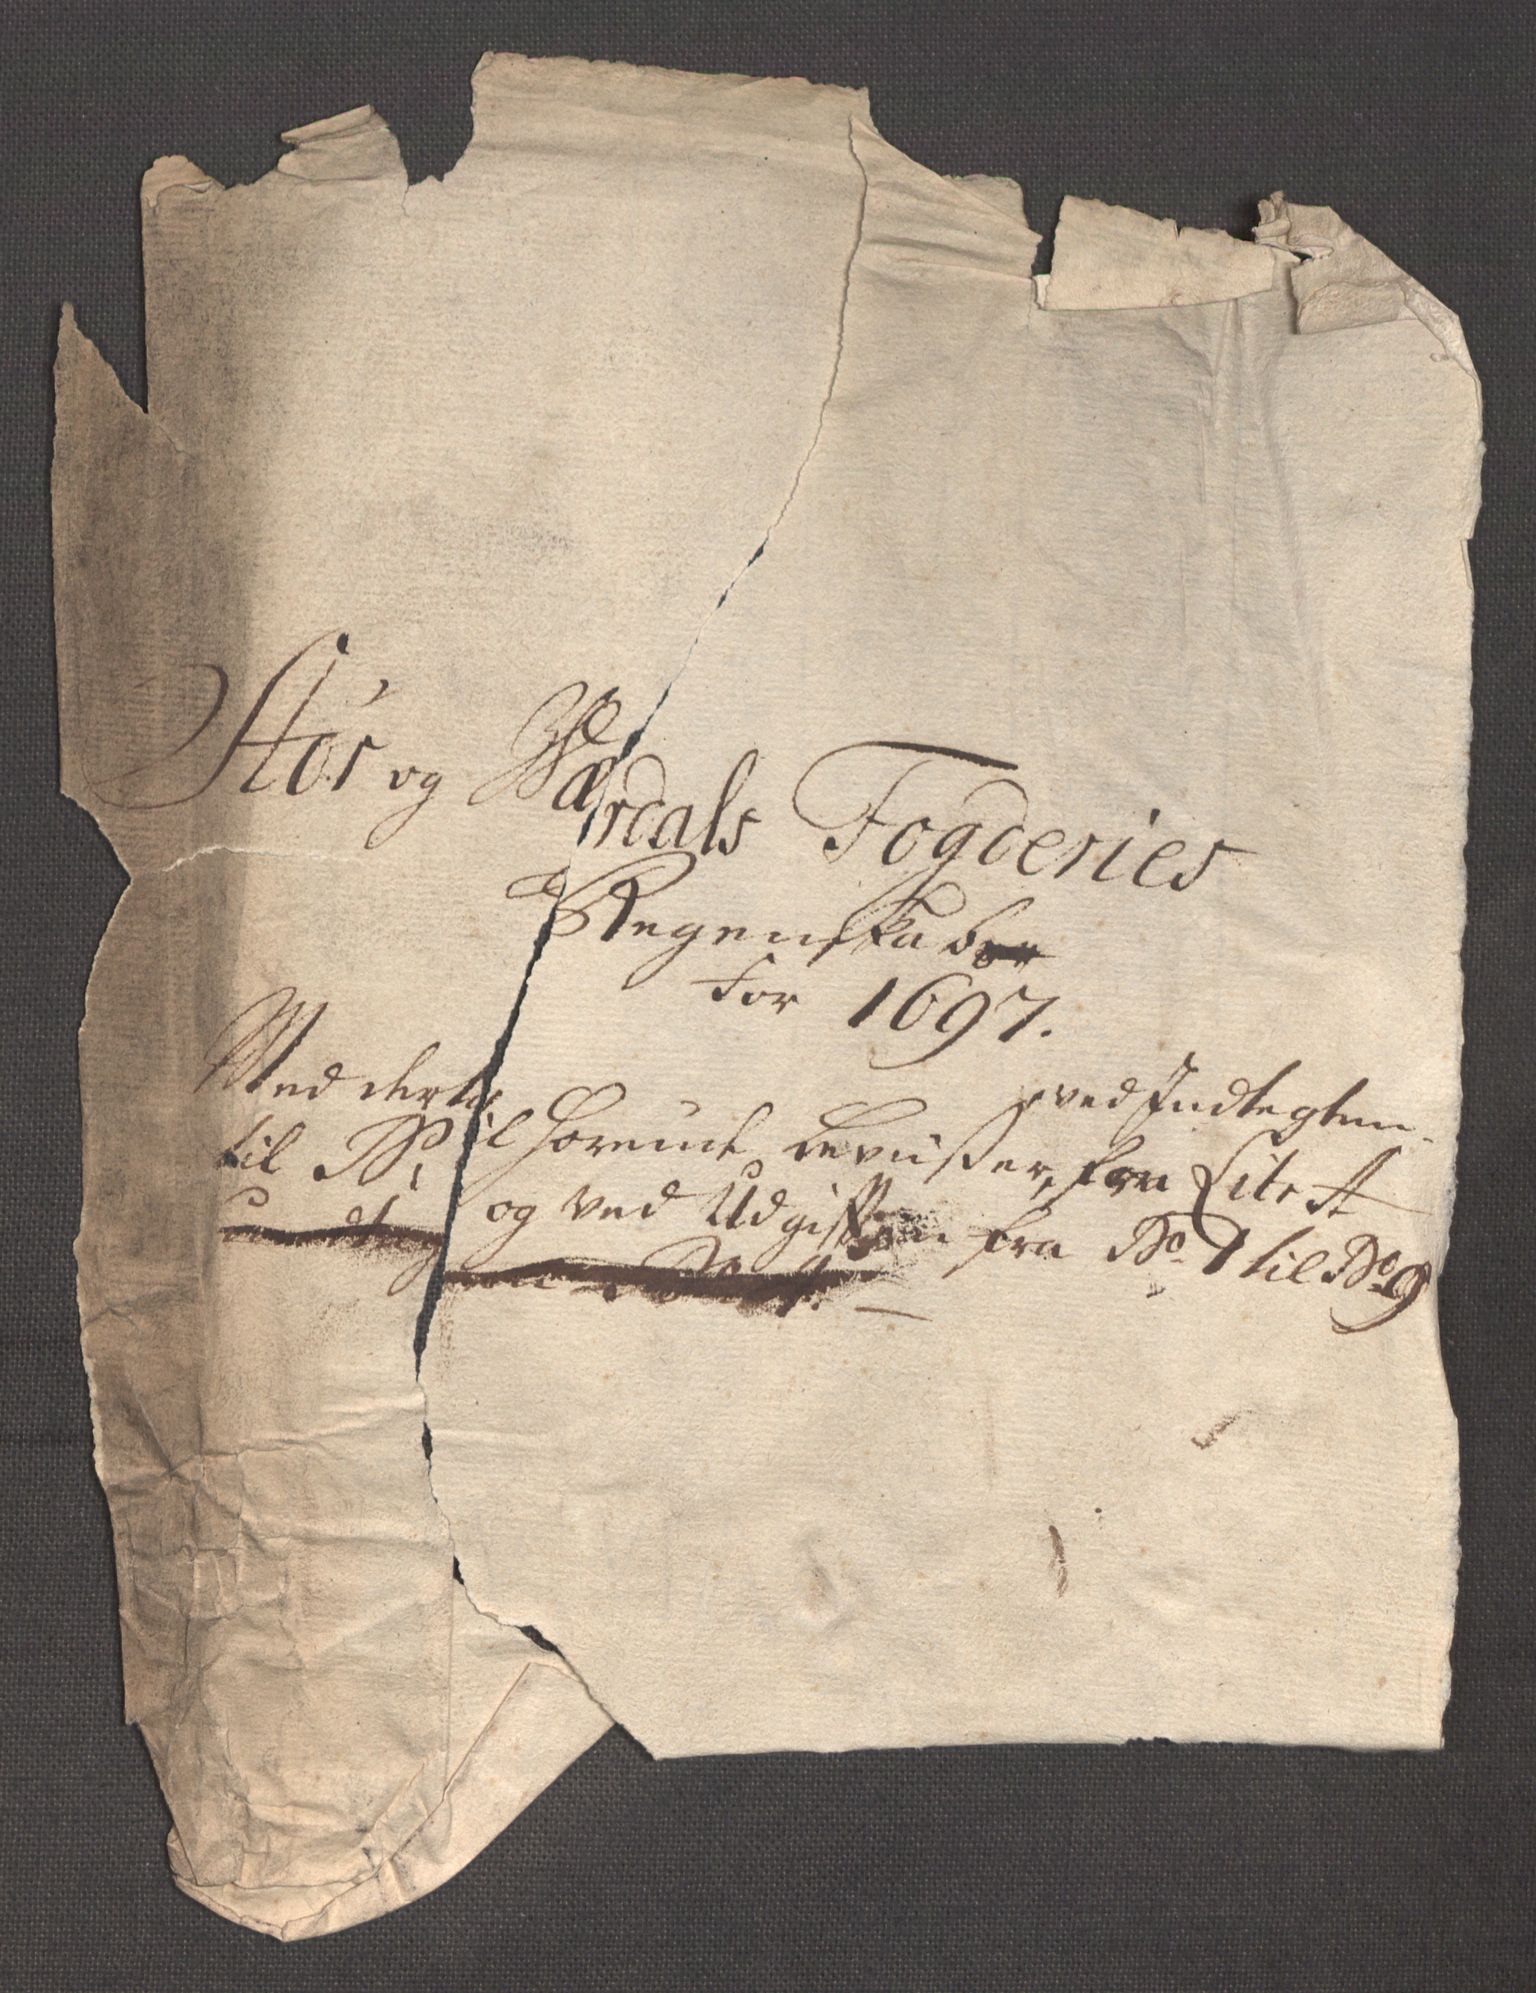 Stør og Værdals Fogderies
Regenskaber
for 1697.
Med dertil hørende beviißer, ved Indtegten fra Litr A
til W, og ved Udgiften fra No 1 til No 19